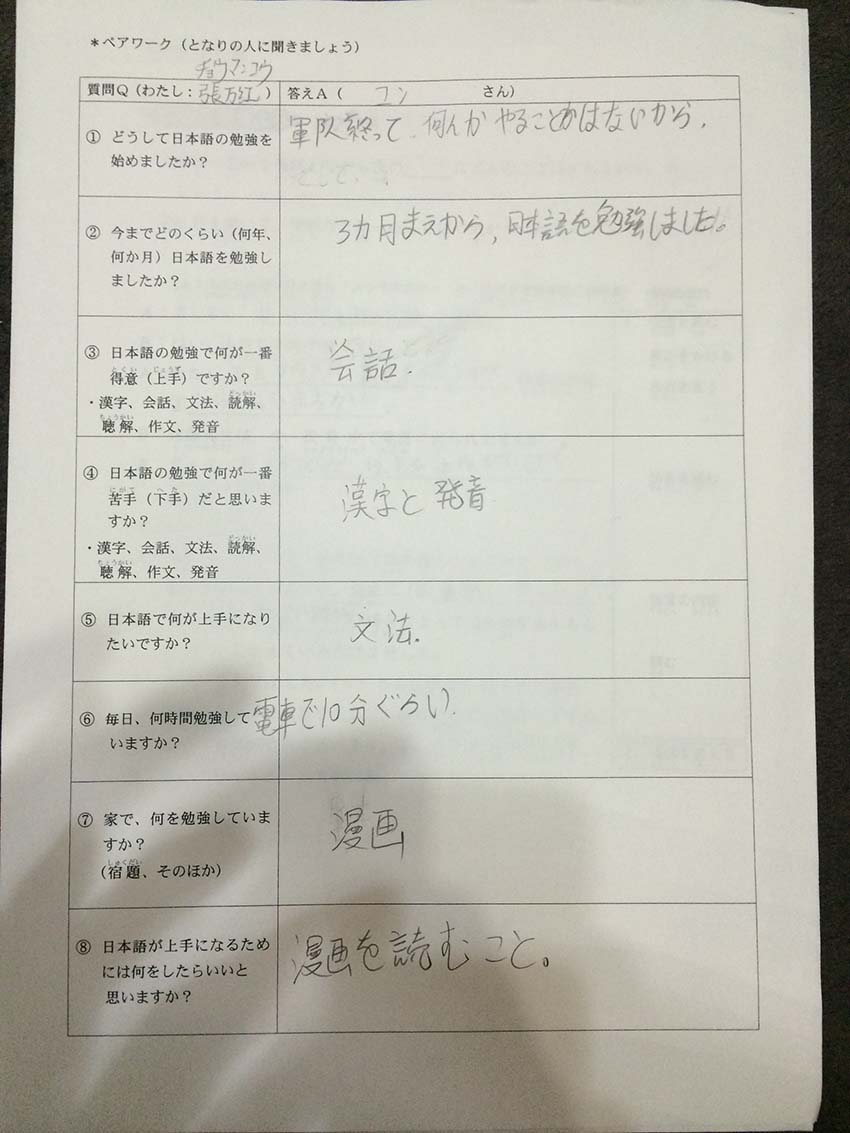 ＊ペアワーク（となりの人に聞きましょう）
チョウマンコウ
質問Q（わたし：張万紅）
答えA（ユン さん）
① どうして日本語の勉強を
始めましたか？
軍队終って、何んか やることかはないから.
② 今までどのくらい（何年、
何か月）日本語を勉強し
ましたか？
3カ月まえから, 日本語を勉強しました。
③ 日本語の勉強で何が一番
とくい じょうず
得意（上手）ですか？
どっかい
・漢字、会話、文法、読解、
ちょうかい
聴解、作文、発音
会話.
④ 日本語の勉強で何が一番
にがて へた
苦手（下手）だと思いま
すか？
どっかい
・漢字、会話、文法、読解、
ちょうかい
聴解、作文、発音
漢字と 発音
⑤ 日本語で何が上手になり
たいですか？
文法.
⑥ 毎日、何時間勉強して
いますか？
電車で10分ぐらい.
⑦ 家で、何を勉強していま
すか？
しゅくだい
（宿題、そのほか）
漫画
⑧ 日本語が上手になるため
には何をしたらいいと
思いますか？
漫画を読むこと。